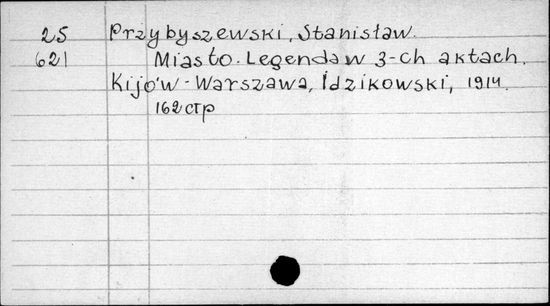 25 Przybyszewski, Stanisław.
621 Miasto. Legenda w 3-ch aktach.
Kijów - Warszawa, Idzikowski, 1914.
162 стр